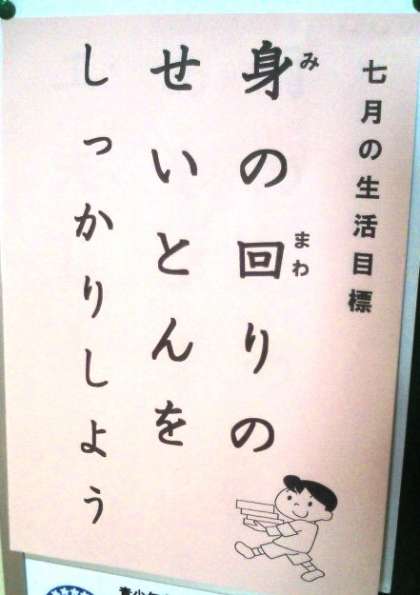 七月の生活目標
身の回りの
みまわ
せいとんを
しっかりしよう